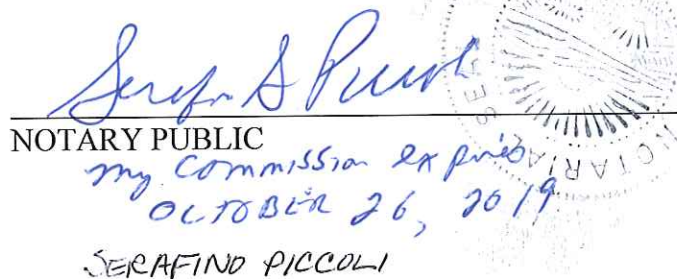 Seraf S Piccoli
NOTARY PUBLIC
my commission expires
OCTOBER 26, 2019
SERAFINO PICCOLI
NOTARIA
SE